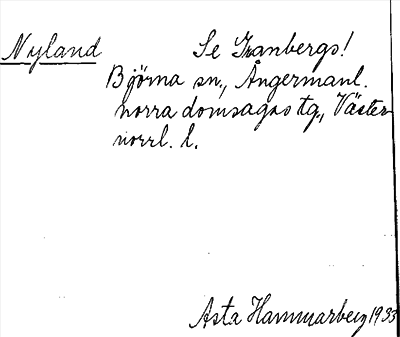 Nyland Se Granbergs!
Björna sn., Ångermanl.
norra domsagas tg., Väster-
norrl. l.
Asta Hammarberg 1933